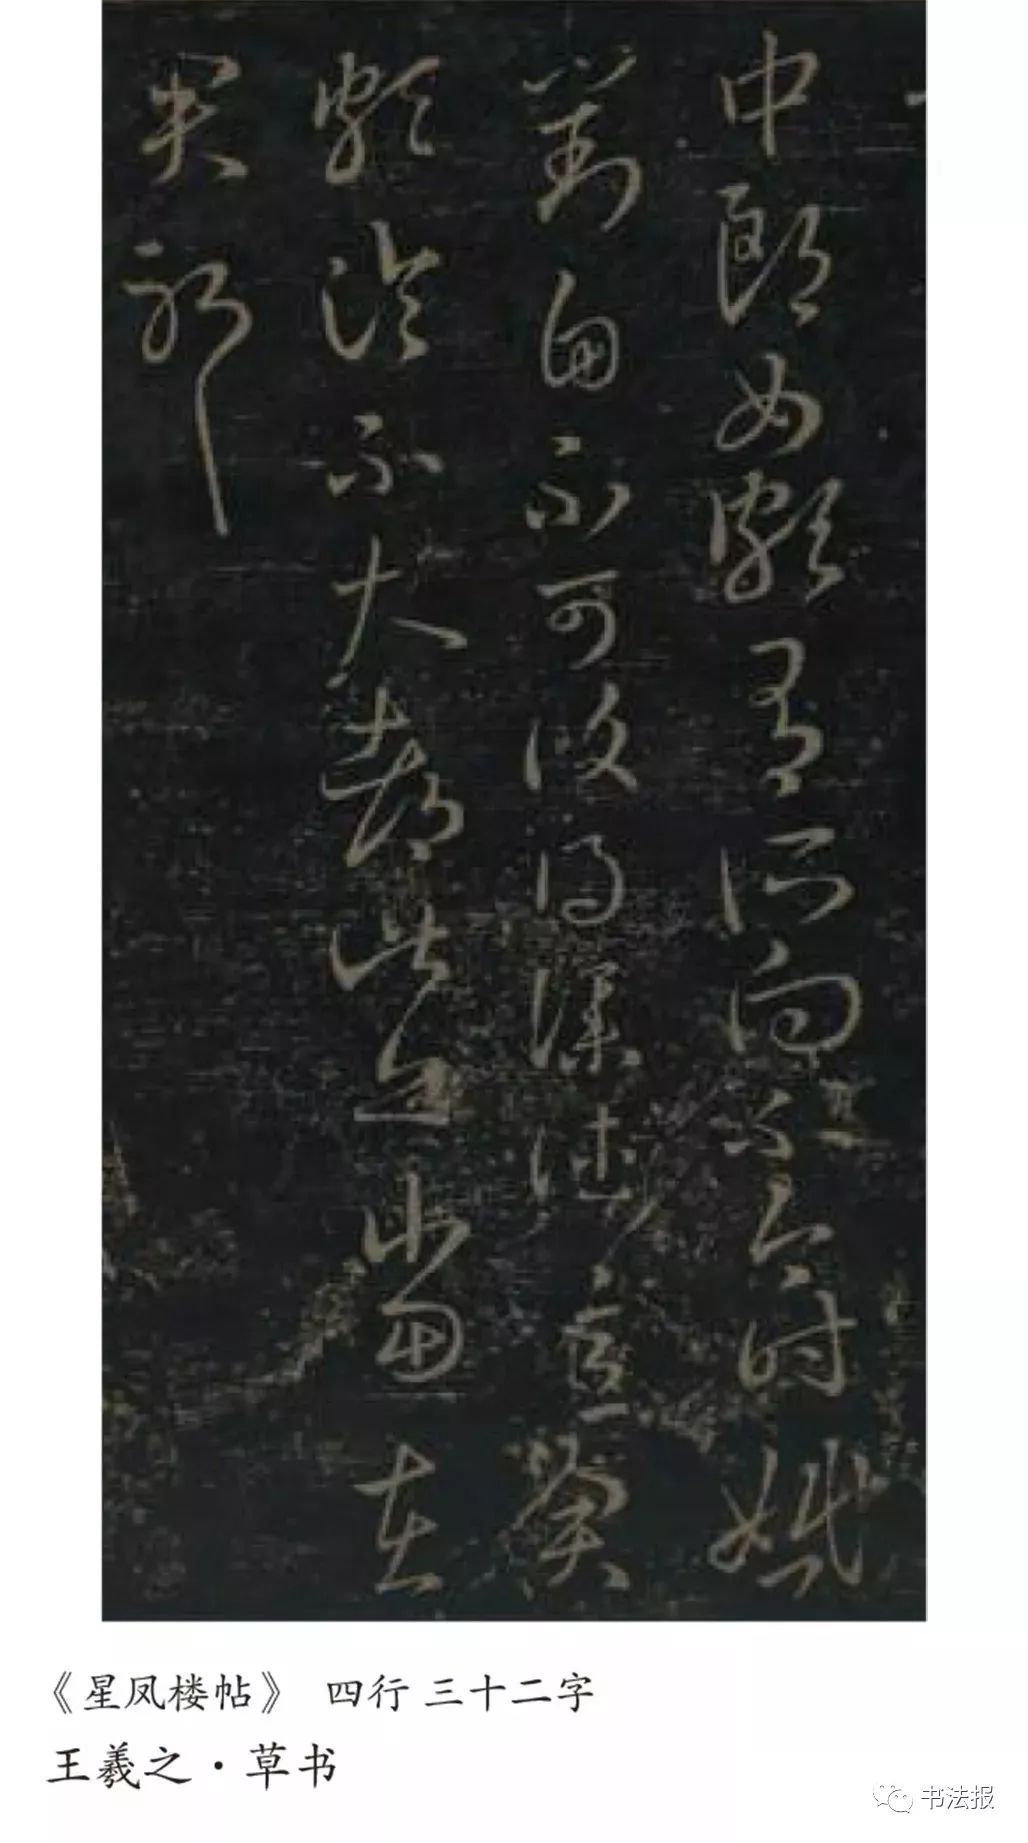 中郎女頗有所向不今時婚
對自不可復得僕往意君
頗論不大都此亦當在
君耶
《星凤楼帖》 四行 三十二字
王羲之·草书
书法报